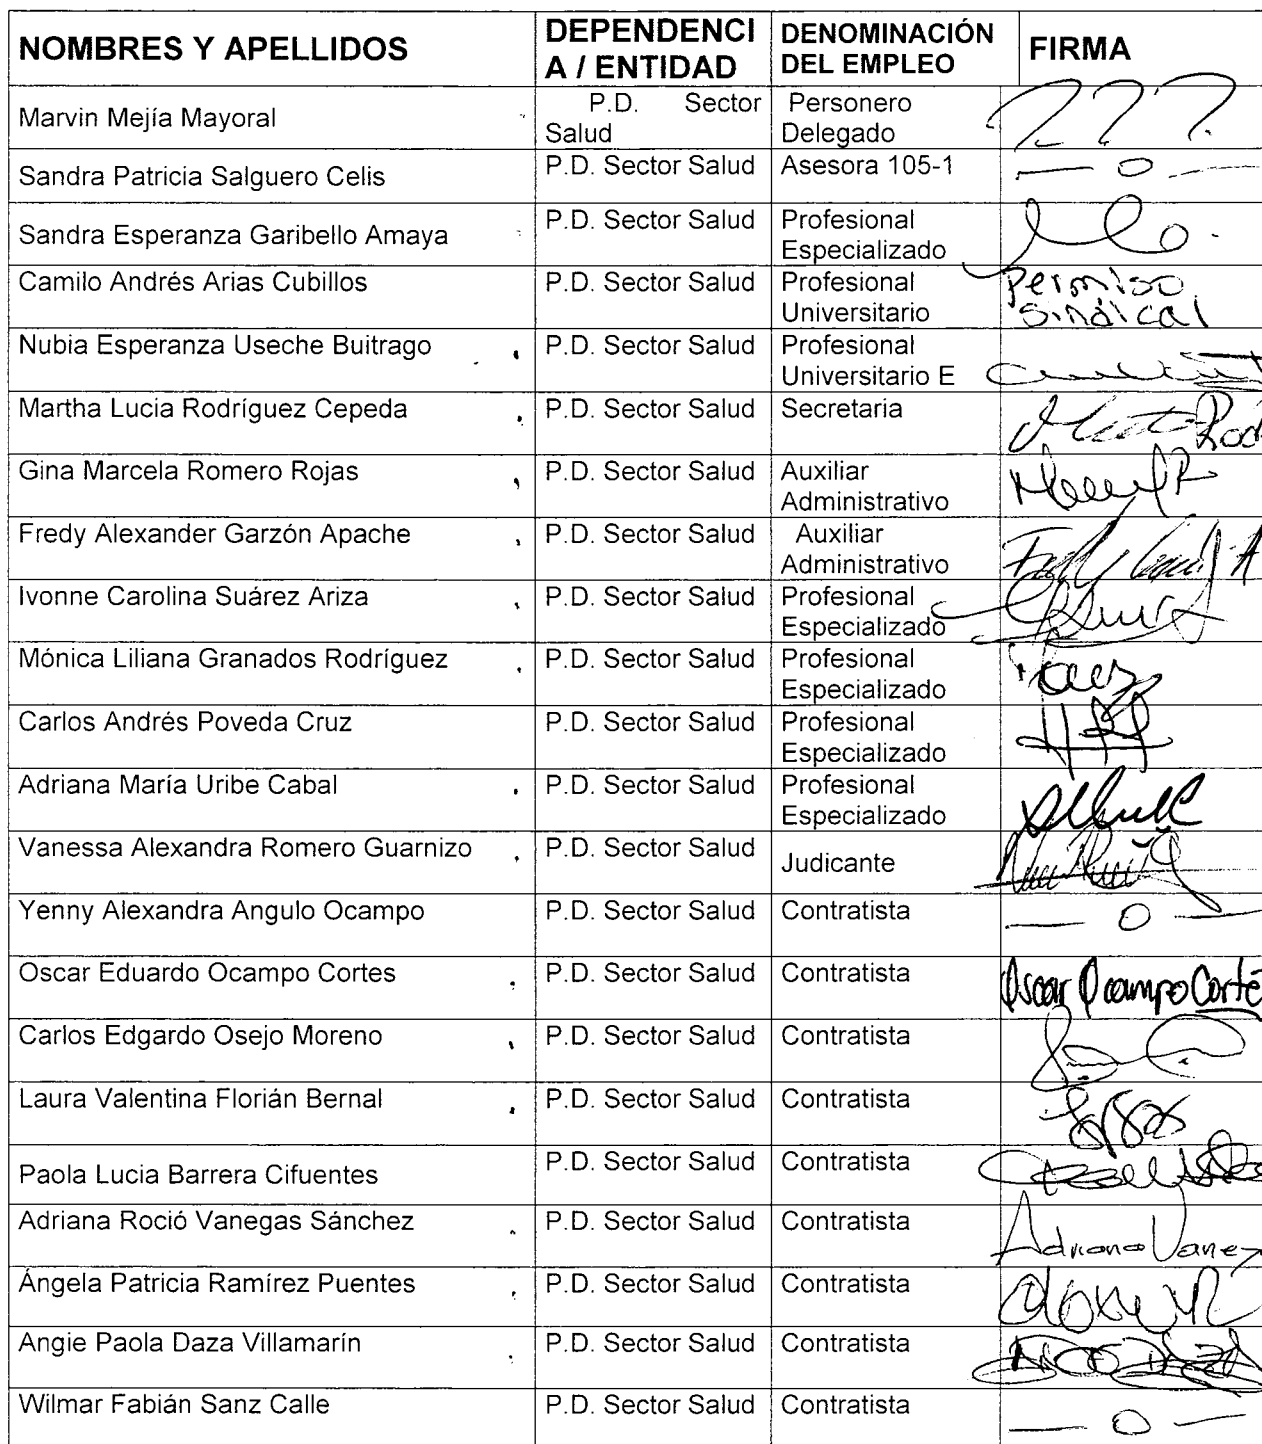 NOMBRES Y APELLIDOS
DEPENDENCI
A / ENTIDAD
DENOMINACIÓN
DEL EMPLEO
FIRMA
Marvin Mejía Mayoral
P.D. Sector
Salud
Personero
Delegado
Sandra Patricia Salguero Celis
P.D. Sector Salud
Asesora 105-1
— 0 —
Sandra Esperanza Garibello Amaya
P.D. Sector Salud
Profesional
Especializado
Camilo Andrés Arias Cubillos
P.D. Sector Salud
Profesional
Universitario
Permiso
Sindical
Nubia Esperanza Useche Buitrago
P.D. Sector Salud
Profesional
Universitario E
Martha Lucia Rodríguez Cepeda
P.D. Sector Salud
Secretaria
Gina Marcela Romero Rojas
P.D. Sector Salud
Auxiliar
Administrativo
Fredy Alexander Garzón Apache
P.D. Sector Salud
Auxiliar
Administrativo
Ivonne Carolina Suárez Ariza
P.D. Sector Salud
Profesional
Especializado
Mónica Liliana Granados Rodríguez
P.D. Sector Salud
Profesional
Especializado
Carlos Andrés Poveda Cruz
P.D. Sector Salud
Profesional
Especializado
Adriana María Uribe Cabal
P.D. Sector Salud
Profesional
Especializado
Vanessa Alexandra Romero Guarnizo
P.D. Sector Salud
Judicante
Yenny Alexandra Angulo Ocampo
P.D. Sector Salud
Contratista
— 0 —
Oscar Eduardo Ocampo Cortes
P.D. Sector Salud
Contratista
Oscar Ocampo Corté
Carlos Edgardo Osejo Moreno
P.D. Sector Salud
Contratista
Laura Valentina Florián Bernal
P.D. Sector Salud
Contratista
Paola Lucia Barrera Cifuentes
P.D. Sector Salud
Contratista
Adriana Roció Vanegas Sánchez
P.D. Sector Salud
Contratista
Adriana Vaneg
Ángela Patricia Ramírez Puentes
P.D. Sector Salud
Contratista
Angie Paola Daza Villamarín
P.D. Sector Salud
Contratista
Wilmar Fabián Sanz Calle
P.D. Sector Salud
Contratista
— 0 —